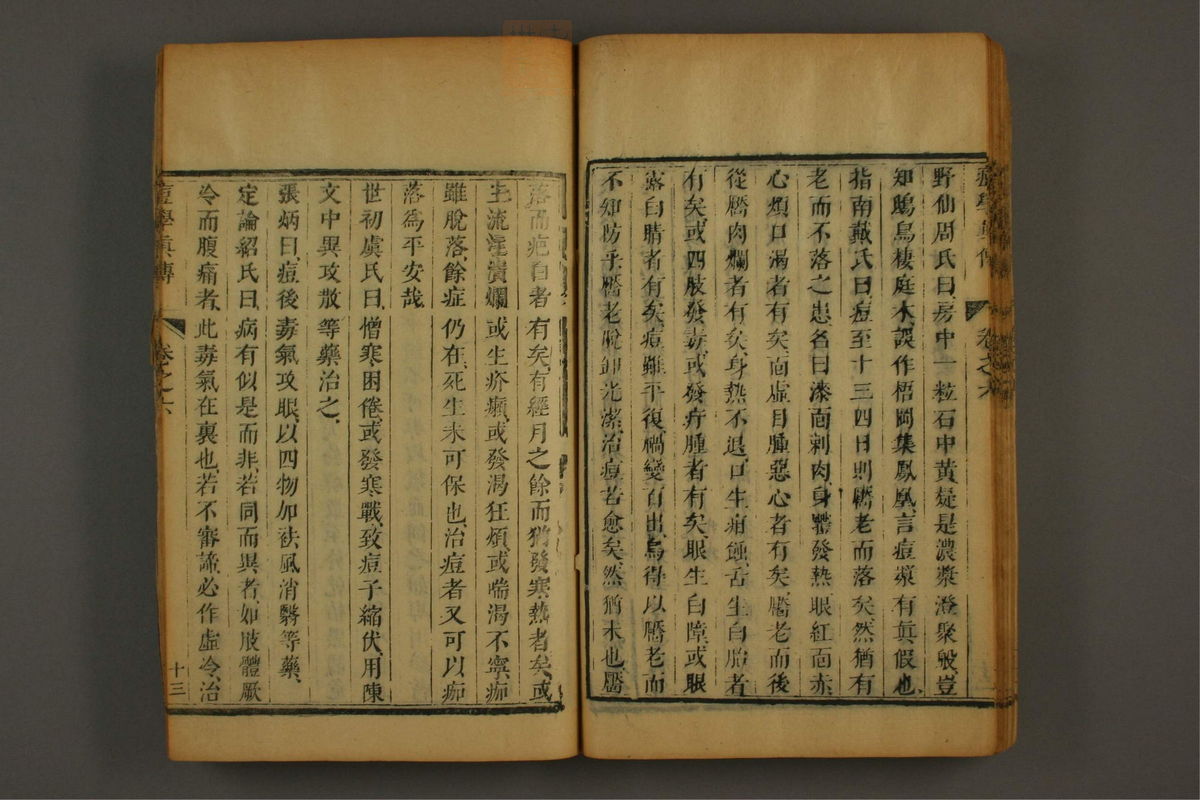 痘學真傳 卷之六
野仙周氏曰房中一粒石中黃疑是濃漿澄聚殼豈
知鴟鳥棲庭木誤作梧岡集鳳凰言痘漿有真假也
指南戴氏曰痘至十三四日則靨老而落矣然猶有
老而不落之患名曰漆面剌肉身體發熱眼紅面赤
心煩口渴者有矣面虛目腫惡心者有矣靨老而後
從靨肉爛者有矣身熱不退口生疳蝕舌生白胎者
有矣或四肢發毒或發疔腫者有矣眼生白障或眼
露白睛者有矣痘雖平復禍變百出烏得以靨老而
不知防乎靨老脫卸光潔治痘若愈矣然猶未也靨
落而疤白者有矣有經月之餘而猶發寒熱者矣或
主流淫潰爛或生疥癩或發渴狂煩或喘渴不寧痂
雖脫落餘症仍在死生未可保也治痘者又可以痂
落為平安哉
世初虞氏曰憎寒困倦或發寒戰致痘子縮伏用陳
文中異攻散等藥治之
張炳曰痘後毒氣攻眼以四物加祛風消翳等藥
定論貂氏曰病有似是而非若同而異者如肢體厥
冷而腹痛者此毒氣在裏也若不審諦必作虛冷治
痘學真傳 卷之六 十三